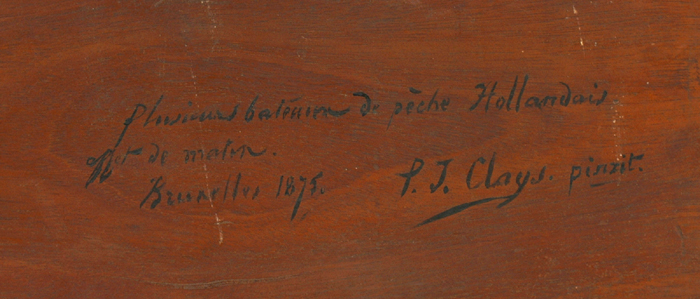 plusieurs bateaux de pêche Hollandais
de matin.
Bruxelles 1875. P. J. Clays. pinxit.